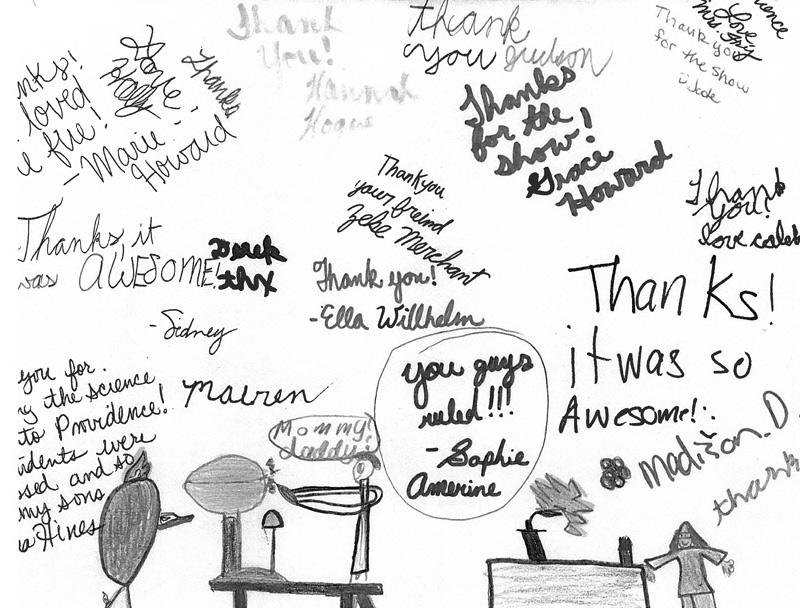 Thank
You!
Hannah
Hogue
thank
you Judson
Love
Mrs. Fry
Thank you
for the show
nks!
loved
fire!
- Marie
Howard
Thanks
Thanks
for the
show!
Grace
Howard
Thank you
your freind
Zeke Merchant
Thank
You!
love caleb
Thanks, it
was AWESOME!
- Sidney
Derek
thx
Thank you!
-Ella Willhelm
Thanks!
it was so
Awesome!
Madison.D.
thank
you for
the science
to Providence!
idents were
sed and so
my sons
Hines
Mairen
Mommy!
daddy!
you guys
ruled!!!
- Sophie
Amerine